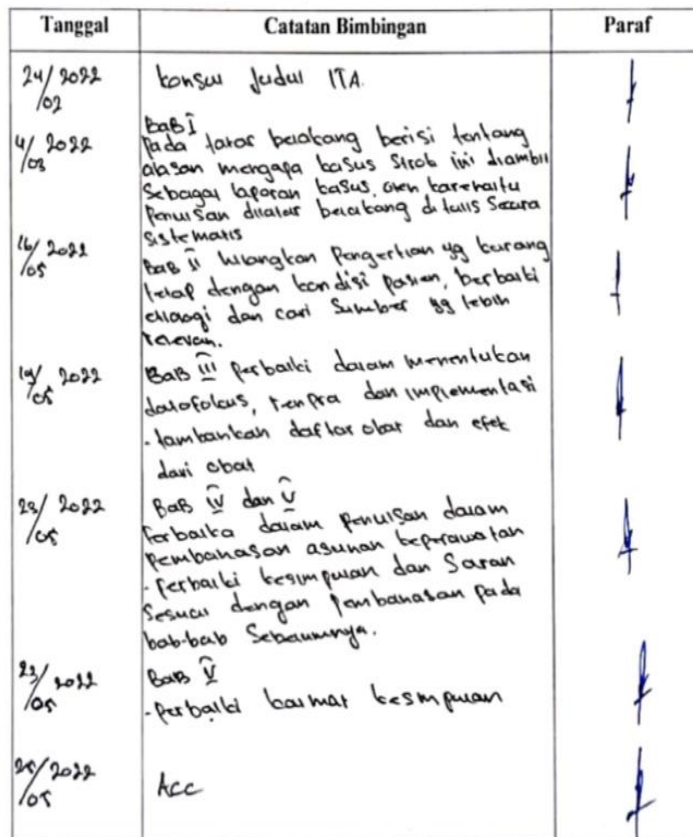 Tanggal Catatan Bimbingan Paraf
24/02 2022 konsul Judul ITA.
BaB I
4/03 2022 Pada latar belakang berisi tentang
alasan mengapa kasus Sirob ini diambil
Sebagai laporan kasus, oleh karena itu
Penulisan dilatar belakang ditulis Secara
Sistematis
16/05 2022 BaB II hilangkan Pengertian yg kurang
tetap dengan kondisi pasien, berbaiki
dan cari Sumber yg lebih
relevan.
19/05 2022 BaB III perbaiki dalam menentukan
datafokus, renpra dan implementasi
- tambahkan daftar obat dan efek
dari obat
2022 BaB IV dan V
/05 Perbaika dalam Penulisan dalam
Pembahasan asuhan keperawatan
- Perbaiki kesimpulan dan Saran
Sesuai dengan Pembahasan pada
bab-bab Sebelumnya.
23/05 2022 BaB V
- Perbaiki kalimat kesimpulan
25/05 2022 Acc